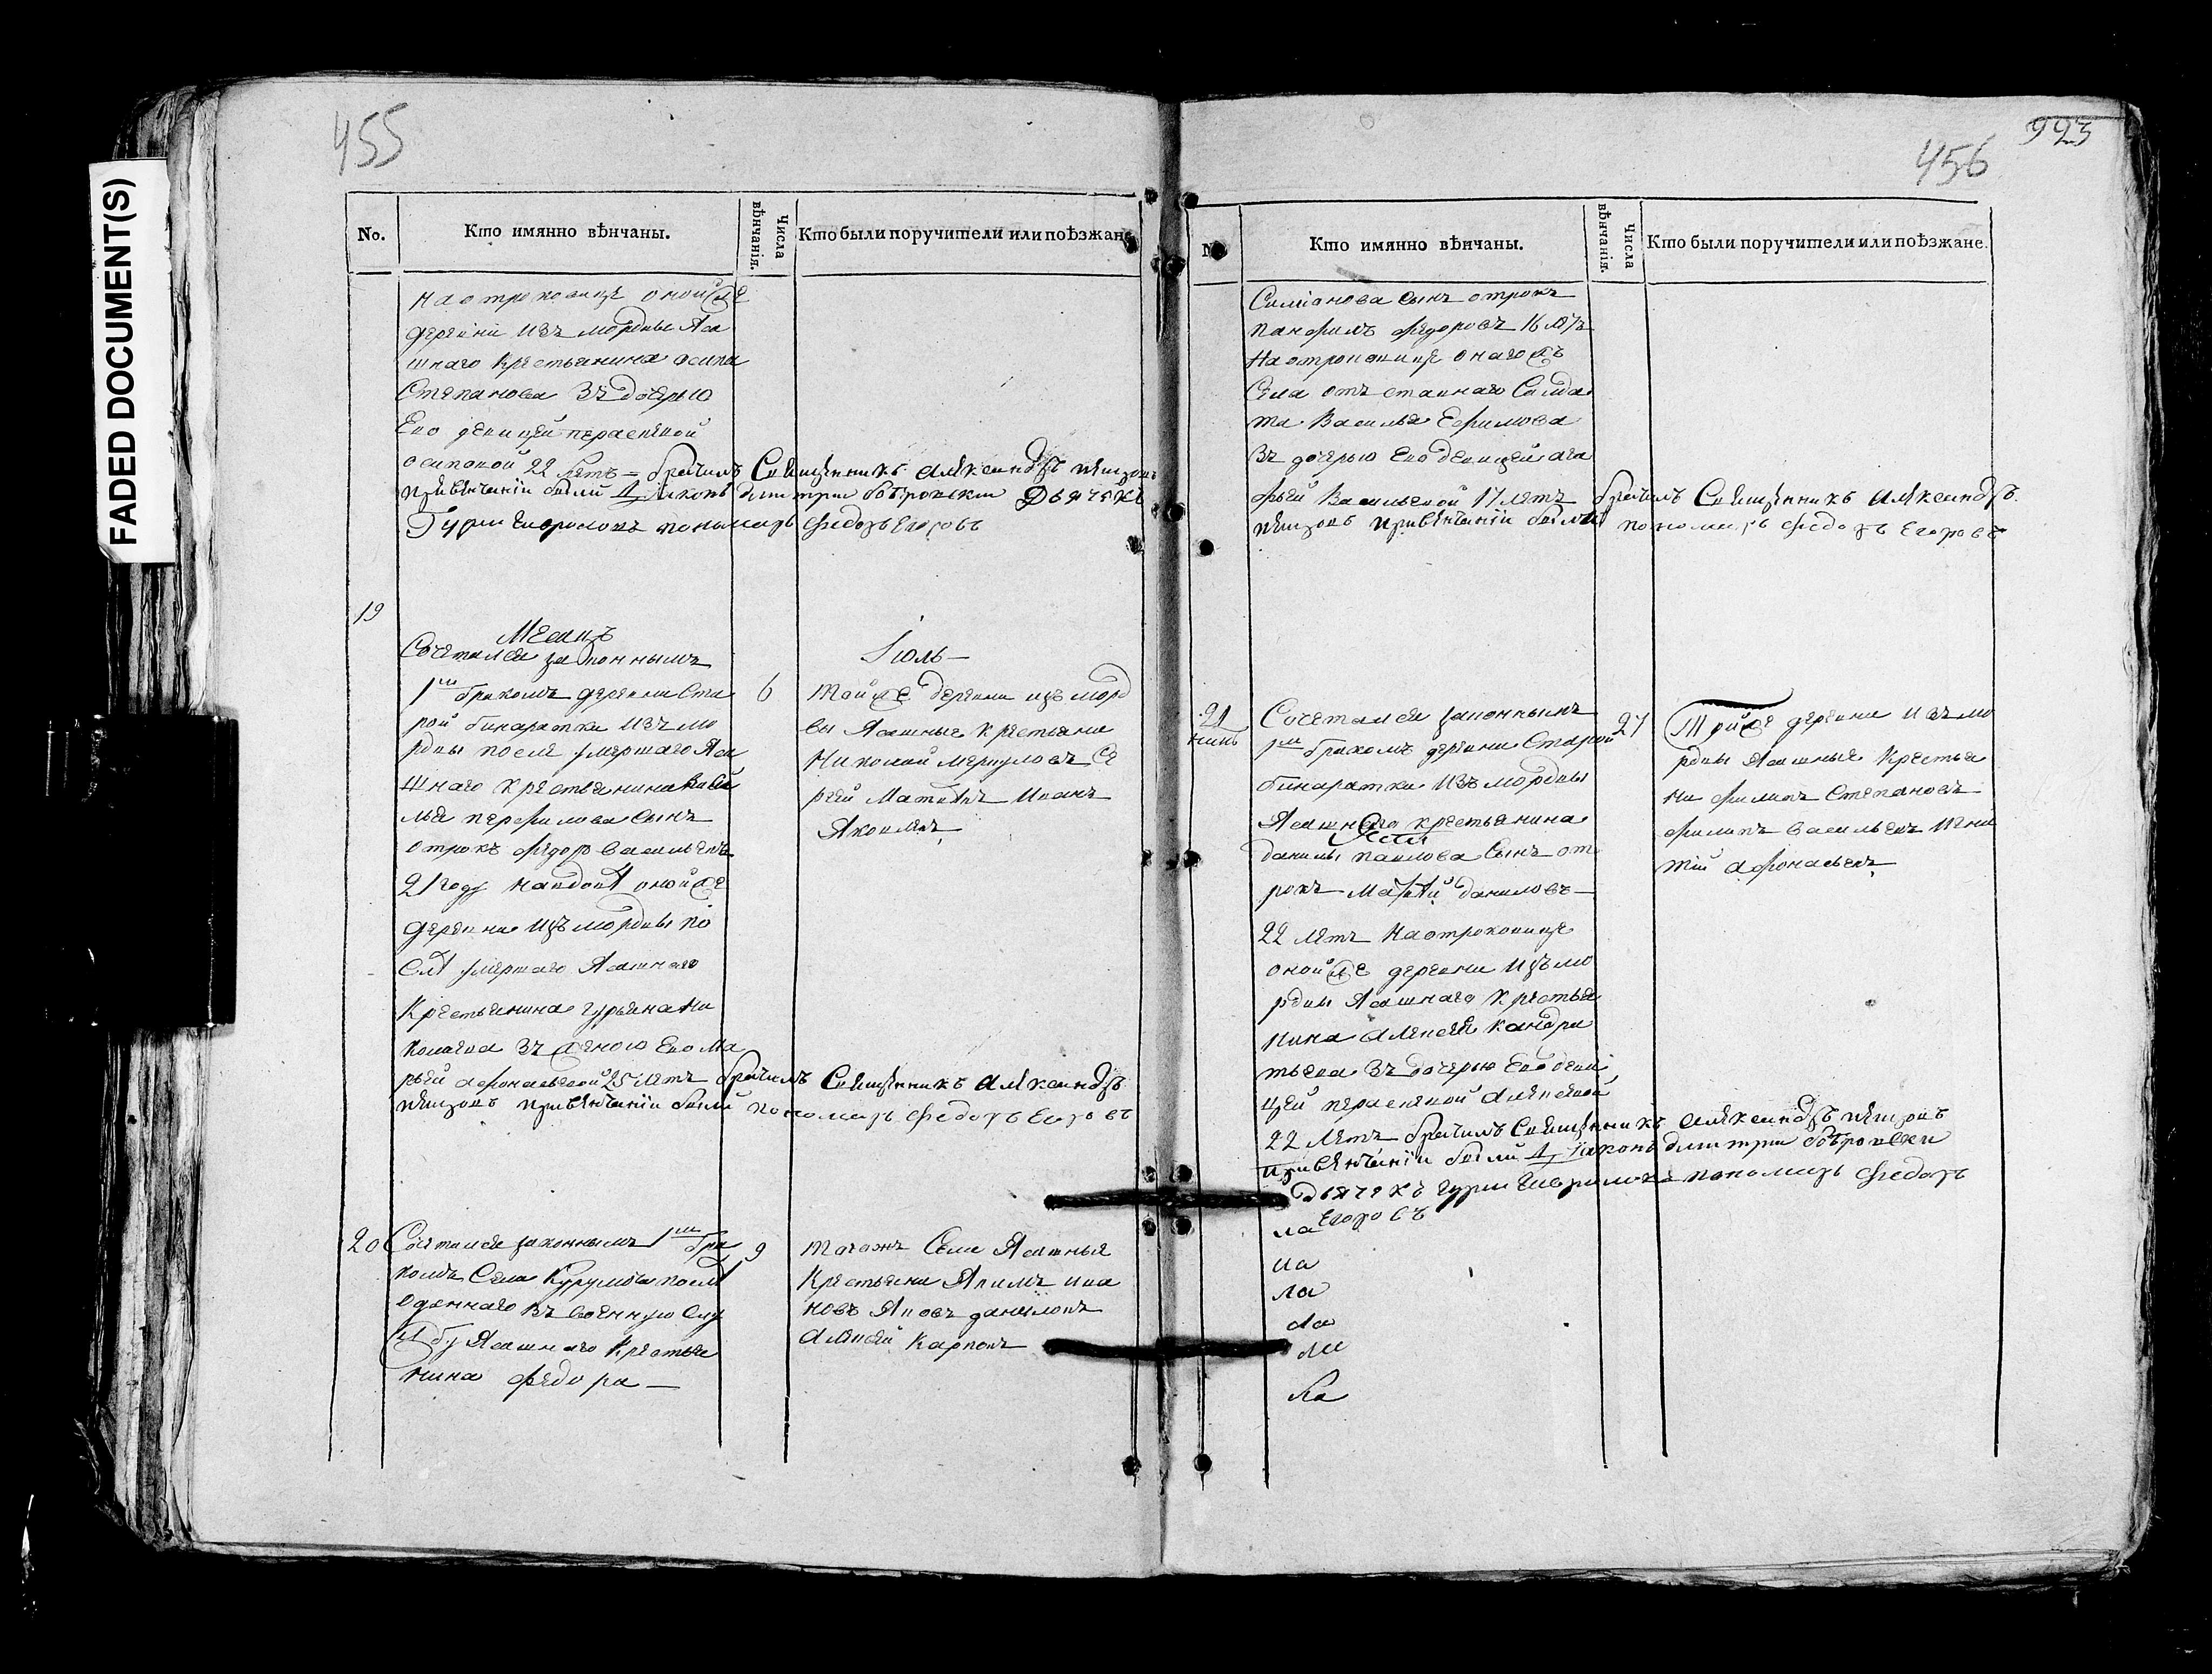 FADED DOCUMENT(S)
455
No.
Кто имянно вѣнчаны.
Числа вѣнчанія.
Кто были поручители или поѣзжане.
на отроковице оной же
деревни изъ мордвы Яса
шнаго крестьянина осипа
Степанова зъ дочерью
Ево девицей
осиповой 22 летъ – брачилъ Священникъ Александръ
привѣнчаніи были Діяконъ дмитри Дьячекъ
Гури пономарь Федоръ Егоровъ
19
Месяцъ
Сочетался законнымъ
Іюль –
1мъ бракомъ деревни Ста
6
рой бинаратки изъ мо
рдвы после умершаго Яса
шнаго крестьянина Васи
лья перфилова сынъ
отрокъ федоръ васильевъ
21 году на вдовѣ оной же
деревни изъ мордвы по
слѣ умершаго Ясашнаго
Крестьянина гурьяна Ни
колаева зъ женою Ево Ма
рьей афонасьевой 25 летъ брачилъ Священникъ Александръ
привѣнчаніи были пономарь федоръ Егоровъ
той же деревни изъ морд
вы Ясашные крестьяне
Николай меркуловъ Се
ргей Матвѣевъ Иванъ
Яковлевъ
20
Сочетался законнымъ 1мъ бра
9
комъ Села Курумоча послѣ
отданнаго въ военную слу
жбу Ясашнаго Крестья
нина федора –
тогожъ Села Ясашныя
Крестьяни Якимъ ива
новъ Яковъ даниловъ
Алексей Карповъ
923
456
No.
Кто имянно вѣнчаны.
Числа вѣнчанія.
Кто были поручители или поѣзжане.
Симіонова сынъ отрокъ
панфилъ федоровъ 16 летъ
На отроковице онагожъ
Села отъ ставнаго Солда
та Василья Ефимова
зъ дочерью Ево девицей ага
фьей Васильевой 17 летъ брачилъ Священникъ Александръ
привѣнчаніи были пономарь федоръ Егоровъ
21
Сочетался законнымъ
27
1мъ бракомъ деревни Старой
бинаратки изъ мордвы
Ясашнаго крестьянина
данилы павлова сынъ от
рокъ даниловъ –
22 летъ На отроковице
оной же деревни изъ мо
рдвы Ясашнаго Крестья
нина алексея кандра
тьева зъ дочерью Ево деви
цей алексевой
22 летъ брачилъ Священникъ Александръ
привѣнчаніи были Діяконъ дмитри
Дьячекъ гури пономарь федоръ
Егоровъ
той же деревни изъ мо
рдвы Ясашные Крестья
ни филипъ Степановъ
филипъ васильевъ Игна
тій афонасьевъ
ла
на
ла
ла